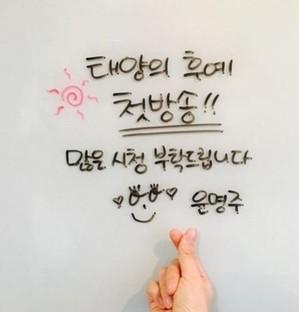 태양의 후예!
첫방송!!
많은 시청 부탁드립니다
윤명주